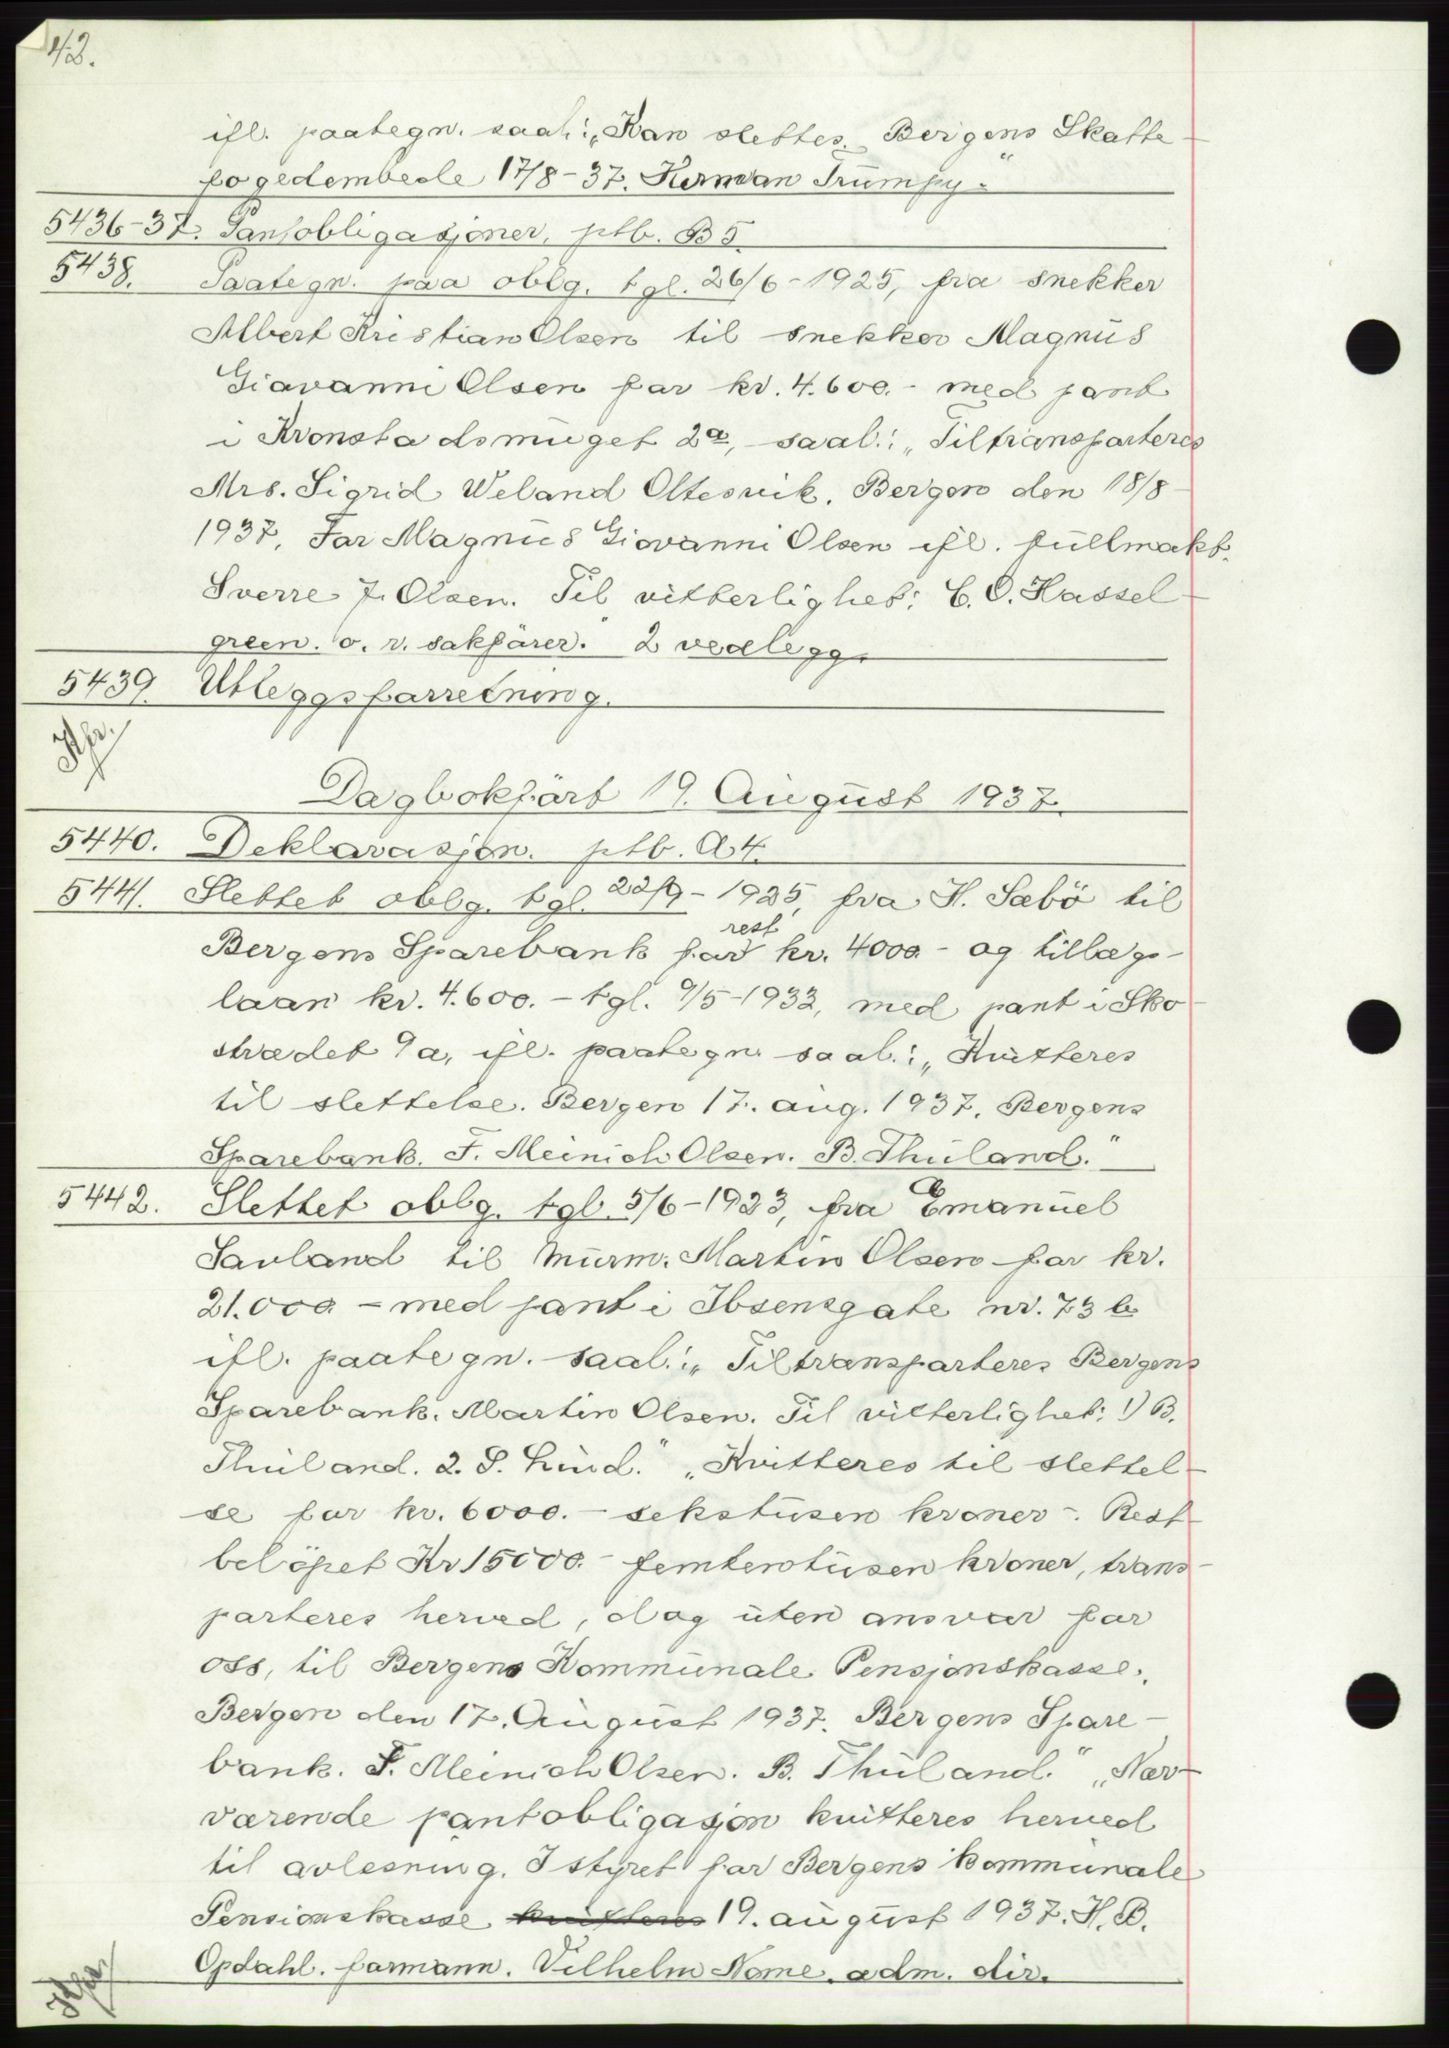 42.
ifl. paategn. saal.: „Kan slettes. Bergens Skatte-
fogedembede 17/8-37. Herman Trumpy."
5436-37. Pantobligasjoner, ptb. B5.
5438. Paategn. paa oblg. tgl. 26/6-1925, fra snekker
Albert Kristian Olsen til snekker Magnus
Giavanni Olsen for kr. 4.600.- med pant
i Kronstadsmuget 2a, saal.: „Tiltransporteres
Mrs. Sigrid Weland Oltesvik. Bergen den 18/8
1937. For Magnus Giovanni Olsen ifl. fullmakt.
Sverre J. Olsen. Til vitterlighet: C. O. Hassel-
green. o. r. sakfører." 2 vedlegg.
5439. Utleggsforretning.
Dagbokført 19. August 1937.
5440. Deklarasjon. ptb. A4.
5441. Slettet oblg. tgl. 22/9-1925, fra H. Sæbö til
rest
Bergens Sparebank for kr. 4000.- og tillægs-
laan kr. 4.600.- tgl. 9/5-1932, med pant i Sko-
strædet 9a, ifl. paategn. saal.: „Kvitteres
til slettelse. Bergen 17. aug. 1937. Bergens
Sparebank. F. Meinich Olsen. B. Thuland."
5442. Slettet oblg. tgl. 5/6-1923, fra Emanuel
Savland til Murm. Martin Olsen for kr.
21.000.- med pant i Ibsensgate nr. 73 b
ifl. paategn. saal.: „Tiltransporteres Bergens
Sparebank. Martin Olsen. Til vitterlighet: 1) B.
Thuland. 2. S. Lind." „Kvitteres til slettel-
se for kr. 6000.- sekstusen kroner-. Rest-
belöpet Kr 15000.- femtentusen kroner, trans-
porteres herved, dog uten ansvar for
oss, til Bergens Kommunale Pensjonskasse.
Bergen den 17. August 1937. Bergens Spare-
bank. F. Meinich Olsen. B. Thuland." „Nær-
værende pantobligasjon kvitteres herved
til avlesning. I styret for Bergens kommunale
Pensionskasse kvitteres 19. august 1937. H. B.
Opdahl. formann. Vilhelm Nome. adm. dir.